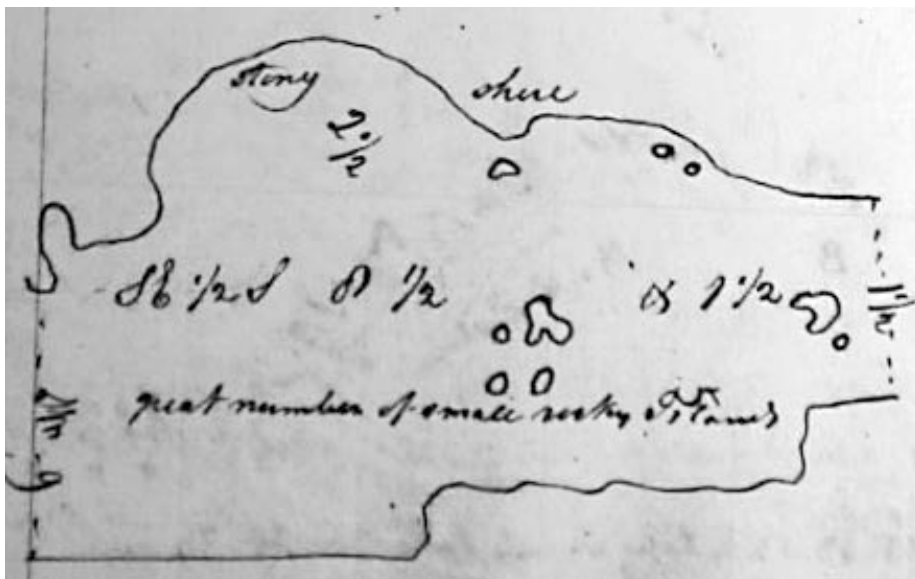 stony shore
2 ½
SE ½ S 8 ½ & 1 ½
1 ½
great number of small rocky Islands